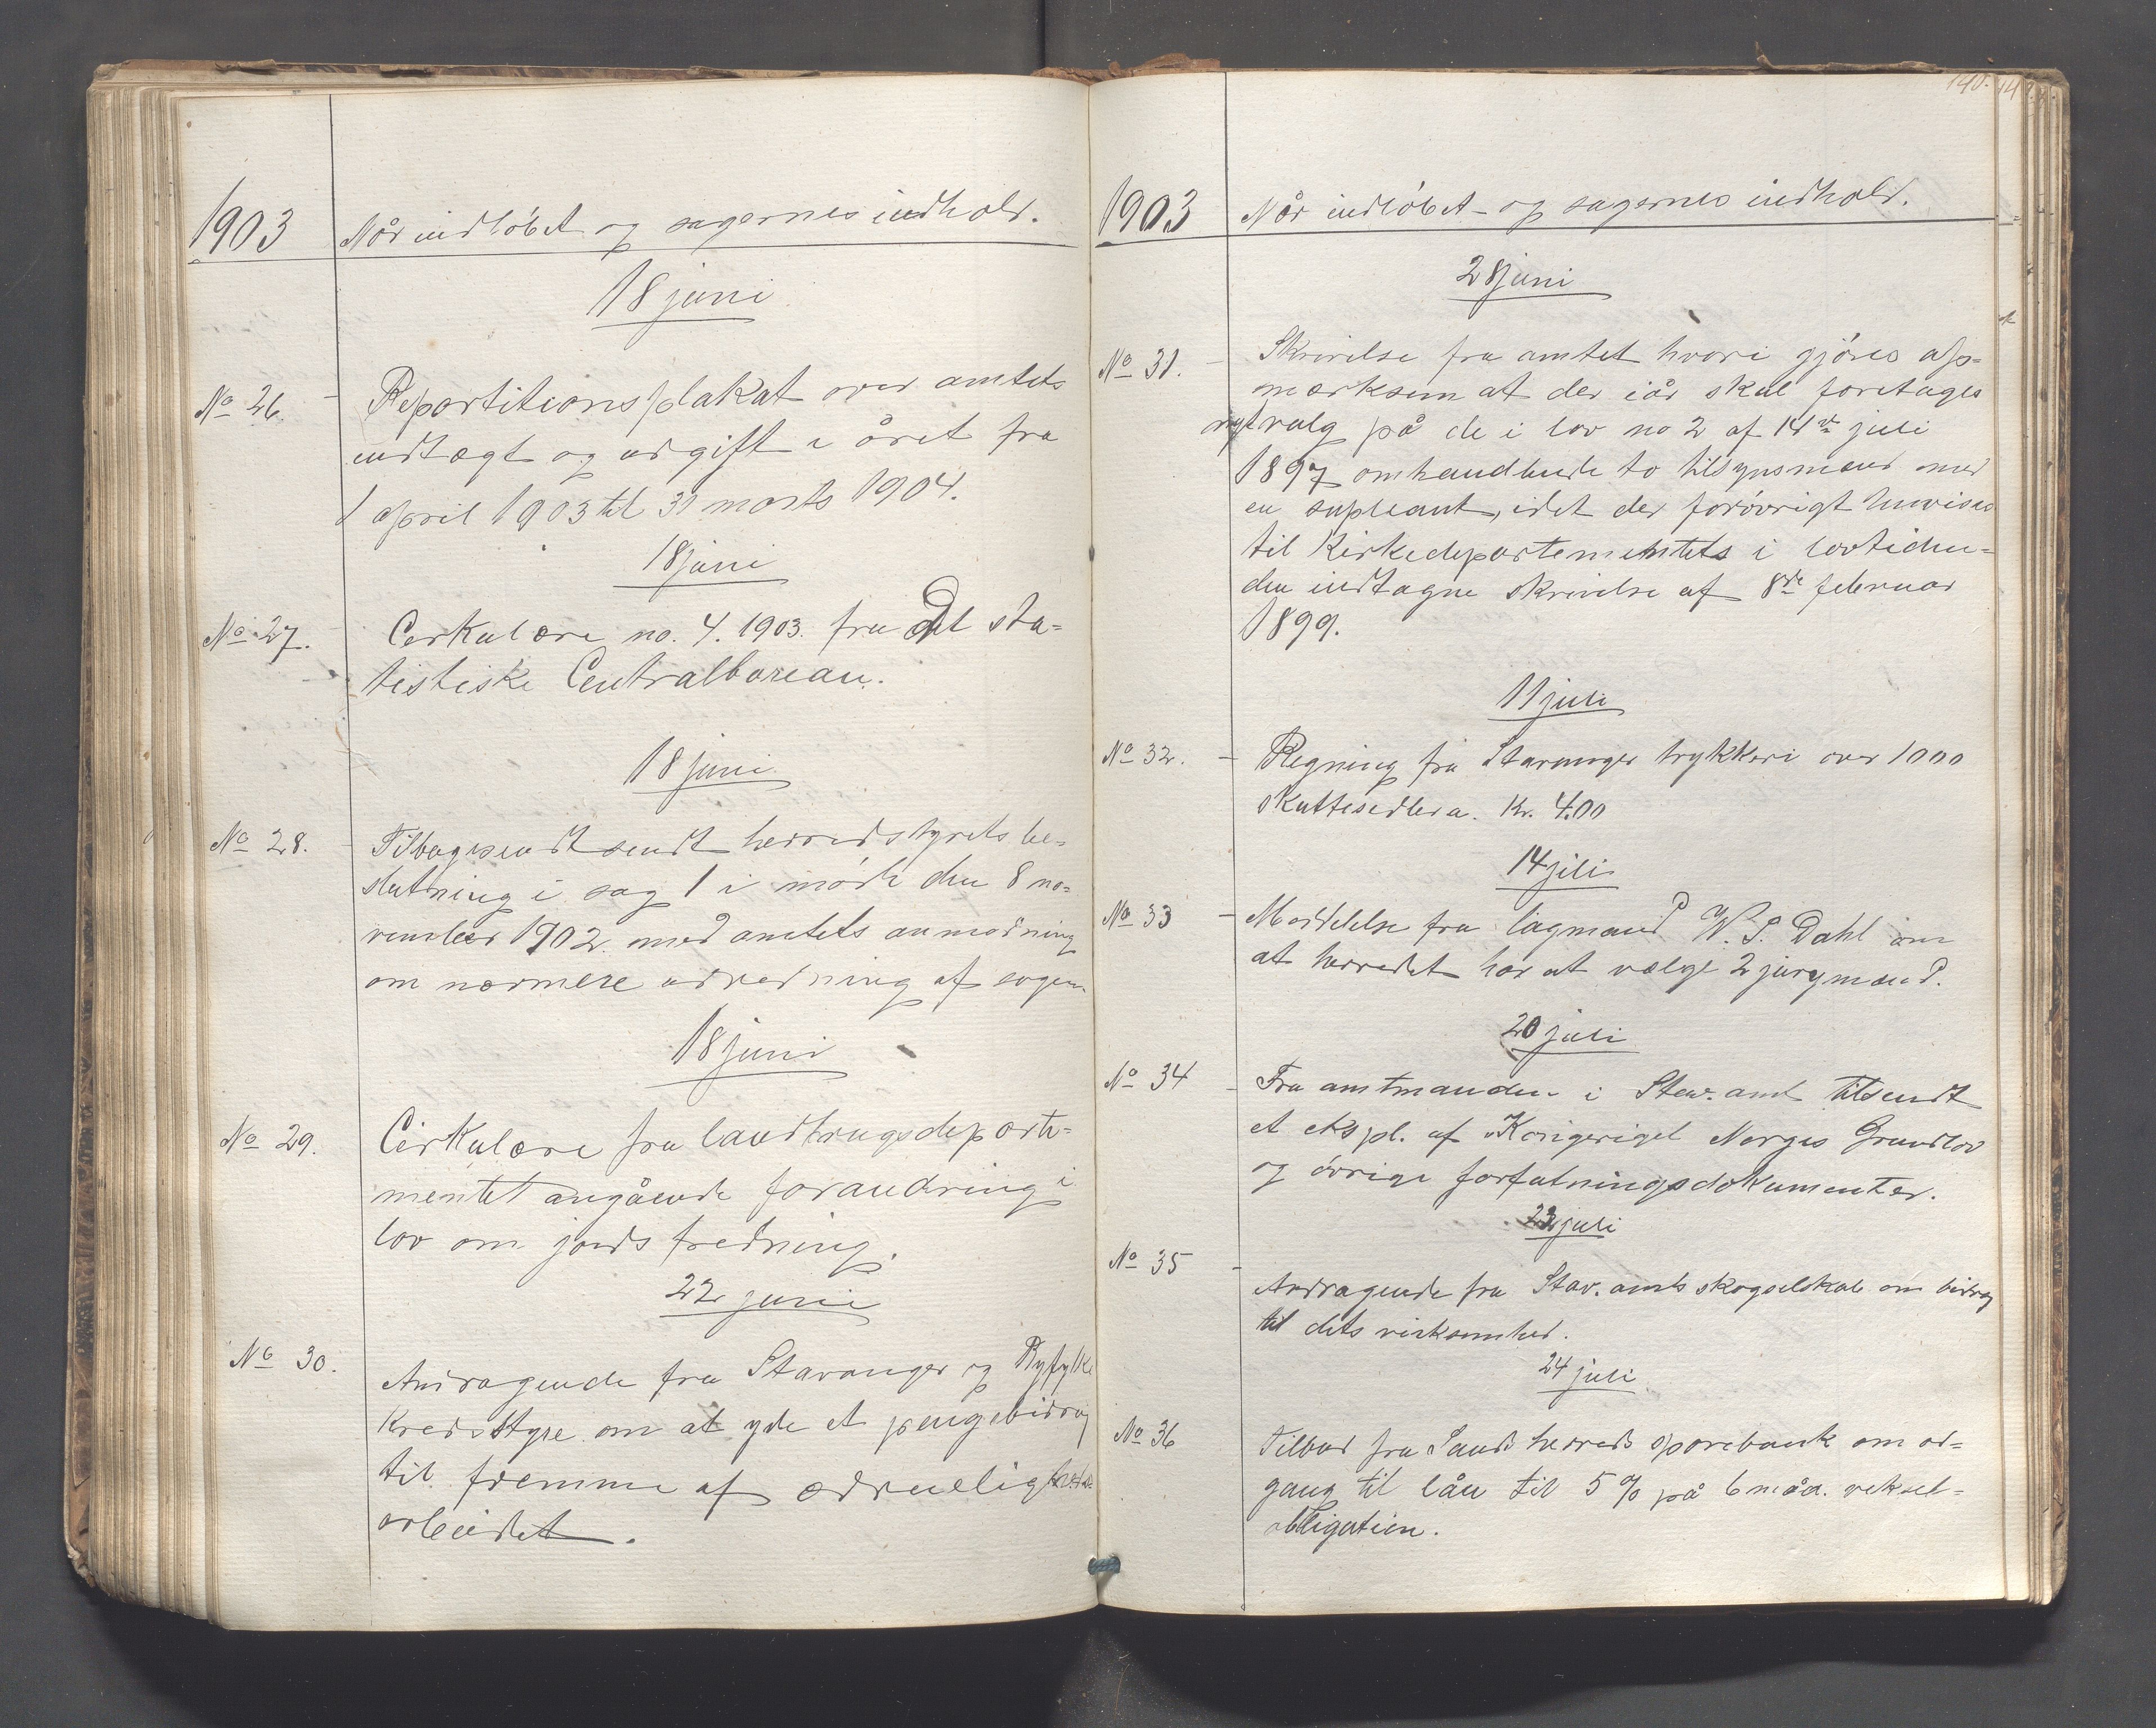 1903
Når indløbet og sagernes indhold.
18 juni
No 26.
Repartitionsplakat over amtets
indtægt og udgift i året fra
1 april 1903 til 31 marts 1904.
18 juni
No 27.
Cerkulære no. 4. 1903. fra Det sta-
tistiske Centralbureau.
18 juni
No 28.
Tilbagesendt sendt herredstyrets be-
slutning i sag 1 i møde den 8 no-
vember 1902 med amtets anmodning
om nærmere udredning af sagen.
18 juni
No 29.
Cirkulære fra landbrugsdeparte-
mentet angående forandring i
lov om jords fredning.
22 juni
No 30.
Andragende fra Stavanger og Ryfylke
Kredsstyre om at yde et pengebidrag
til fremme af ædrueligheds
arbeidet.
140.
1903
Når indløbet - og sagernes indhold.
28 juni
No 31. -
Skrivelse fra amtet hvori gjøres op-
mærksom at der iår skal foretages
nyt valg på de i lov no 2 af 14de juli
1897 omhandlende to tilsynsmænd med
en supleant, idet der forøvrigt henvises
til Kirkedepartementets i lovtiden-
den indtagne skrivelse af 8de februar
1899.
11 juli
No 32. -
Regning fra Stavanger trykkeri over 1000
skattesedlera. Kr. 4.00
14 juli
No 33 -
Meddelelse fra lagmand W. S. Dahl om
at herredet har at vælge 2 jurymænd.
20 juli
No 34 -
Fra amtmanden i Stav. amt tilsendt
et ekspl. af Kongeriget Norges Grundlov
og øvrige forfatningsdokumenter.
22 juli
No 35 -
Andragende fra Stav. amts skogselskab om bidrag
til dets virksomhed.
24 juli
No 36
Tilbud fra Sands herreds sparebank om ad-
gang til lån til 5 % på 6 måa. veksel-
obligation.